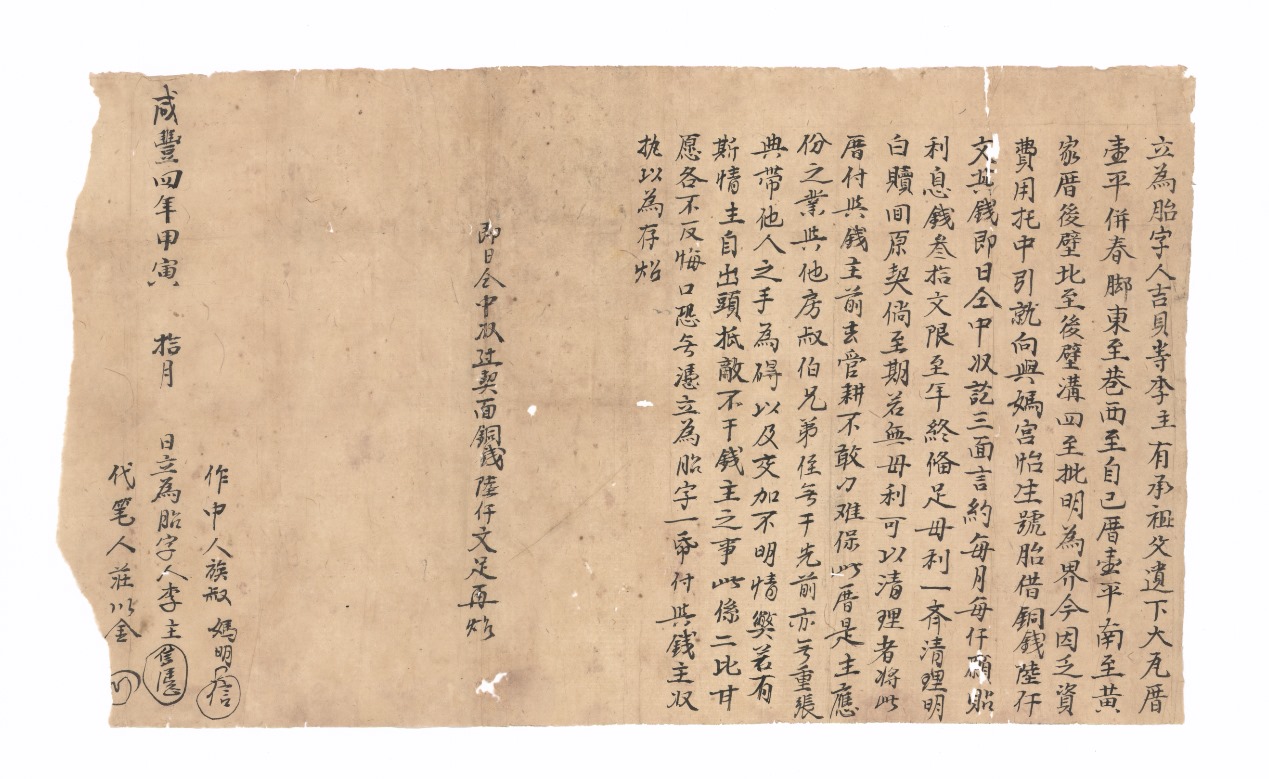 立為胎字人吉貝耒李主有承祖父遺下大瓦厝
壹平併春脚東至巷西至自己厝壹平南至黃
家厝後壁北至後壁溝四至批明為界今因乏資
費用托中引就向與媽宮怡生號胎借銅錢陸仟
文其錢即日仝中收訖三面言約每月每仟願貼
利息錢叁拾文限至年終俻足母利一齊清理明
白贖回原契倘至期若無母利可以清理者將此
厝付與錢主前去管耕不敢刁难保此厝是主應
份之業與他房叔伯兄弟侄無干先前亦無重張
典帶他人之手為碍以及交加不明情弊若有
斯情主自出頭抵敵不干錢主之事此係二比甘
愿各不反悔口恐無憑立為胎字一帋付與錢主収
执以為存炤
即日仝中收过契面銅錢陸仟文足再炤
作中人族叔 媽明 信
咸豐四年甲寅 拾月 日立為胎字人李主
代笔人莊以金